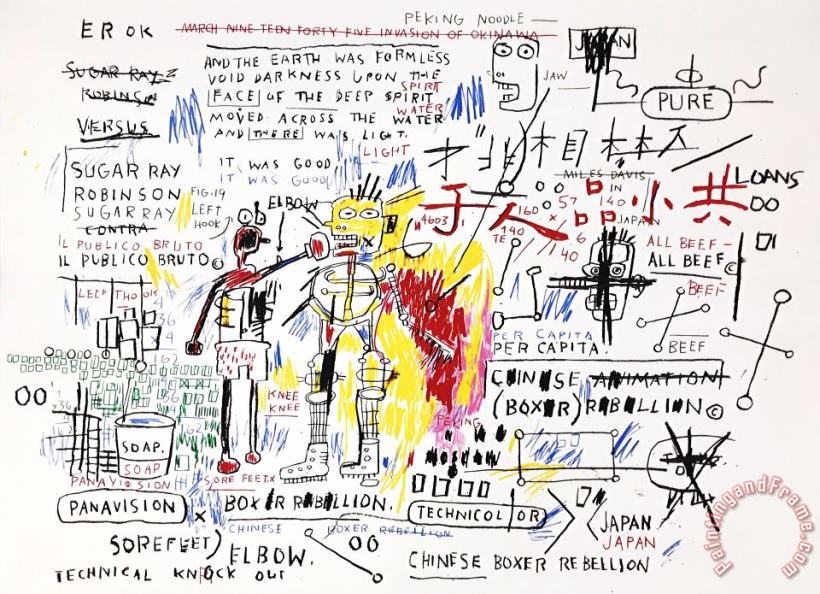 PEKING NOODLE —
EROK
MARCH NINE TEEN FORTY FIVE INVASION OF OKINAWA
SUGAR RAY
ROBINSON
VERSUS
AND THE EARTH WAS FORMLESS
VOID DARKNESS UPON THE
SPIRIT
FACE OF THE DEEP SPIRIT
WATER
MOVED ACROSS THE WATER
AND THERE WAS LIGHT.
LIGHT
JAW
PURE
IT WAS GOOD
IT WAS GOOD
MILES DAVIS
IN
JAPAN
LOANS
OO
SUGAR RAY
ROBINSON
SUGAR RAY
CONTRA
IL PUBLICO BRUTO
IL PUBLICO BRUTO©
FIG.19
LEFT
HOOK
ELBOW
"4603"
人品小共
57
160
140
140
TE
6
40
ALL BEEF –
ALL BEEF©
BEEF
BEEF
PER CAPITA
PER CAPITA.
CHINESE ANIMATION
(BOXER) REBELLION©
OO
KNEE
KNEE
PEKING
MOSCOW
SOAP.
SOAP
PANAVISION
PANAVISION
SORE FEET.X
X
BOXER REBELLION.
CHINESE BOXER REBELLION
TECHNICOLOR
JAPAN
JAPAN
SOREFEET)
ELBOW.
OO
CHINESE BOXER REBELLION
TECHNICAL KNOCK OUT
paintingandframe.com